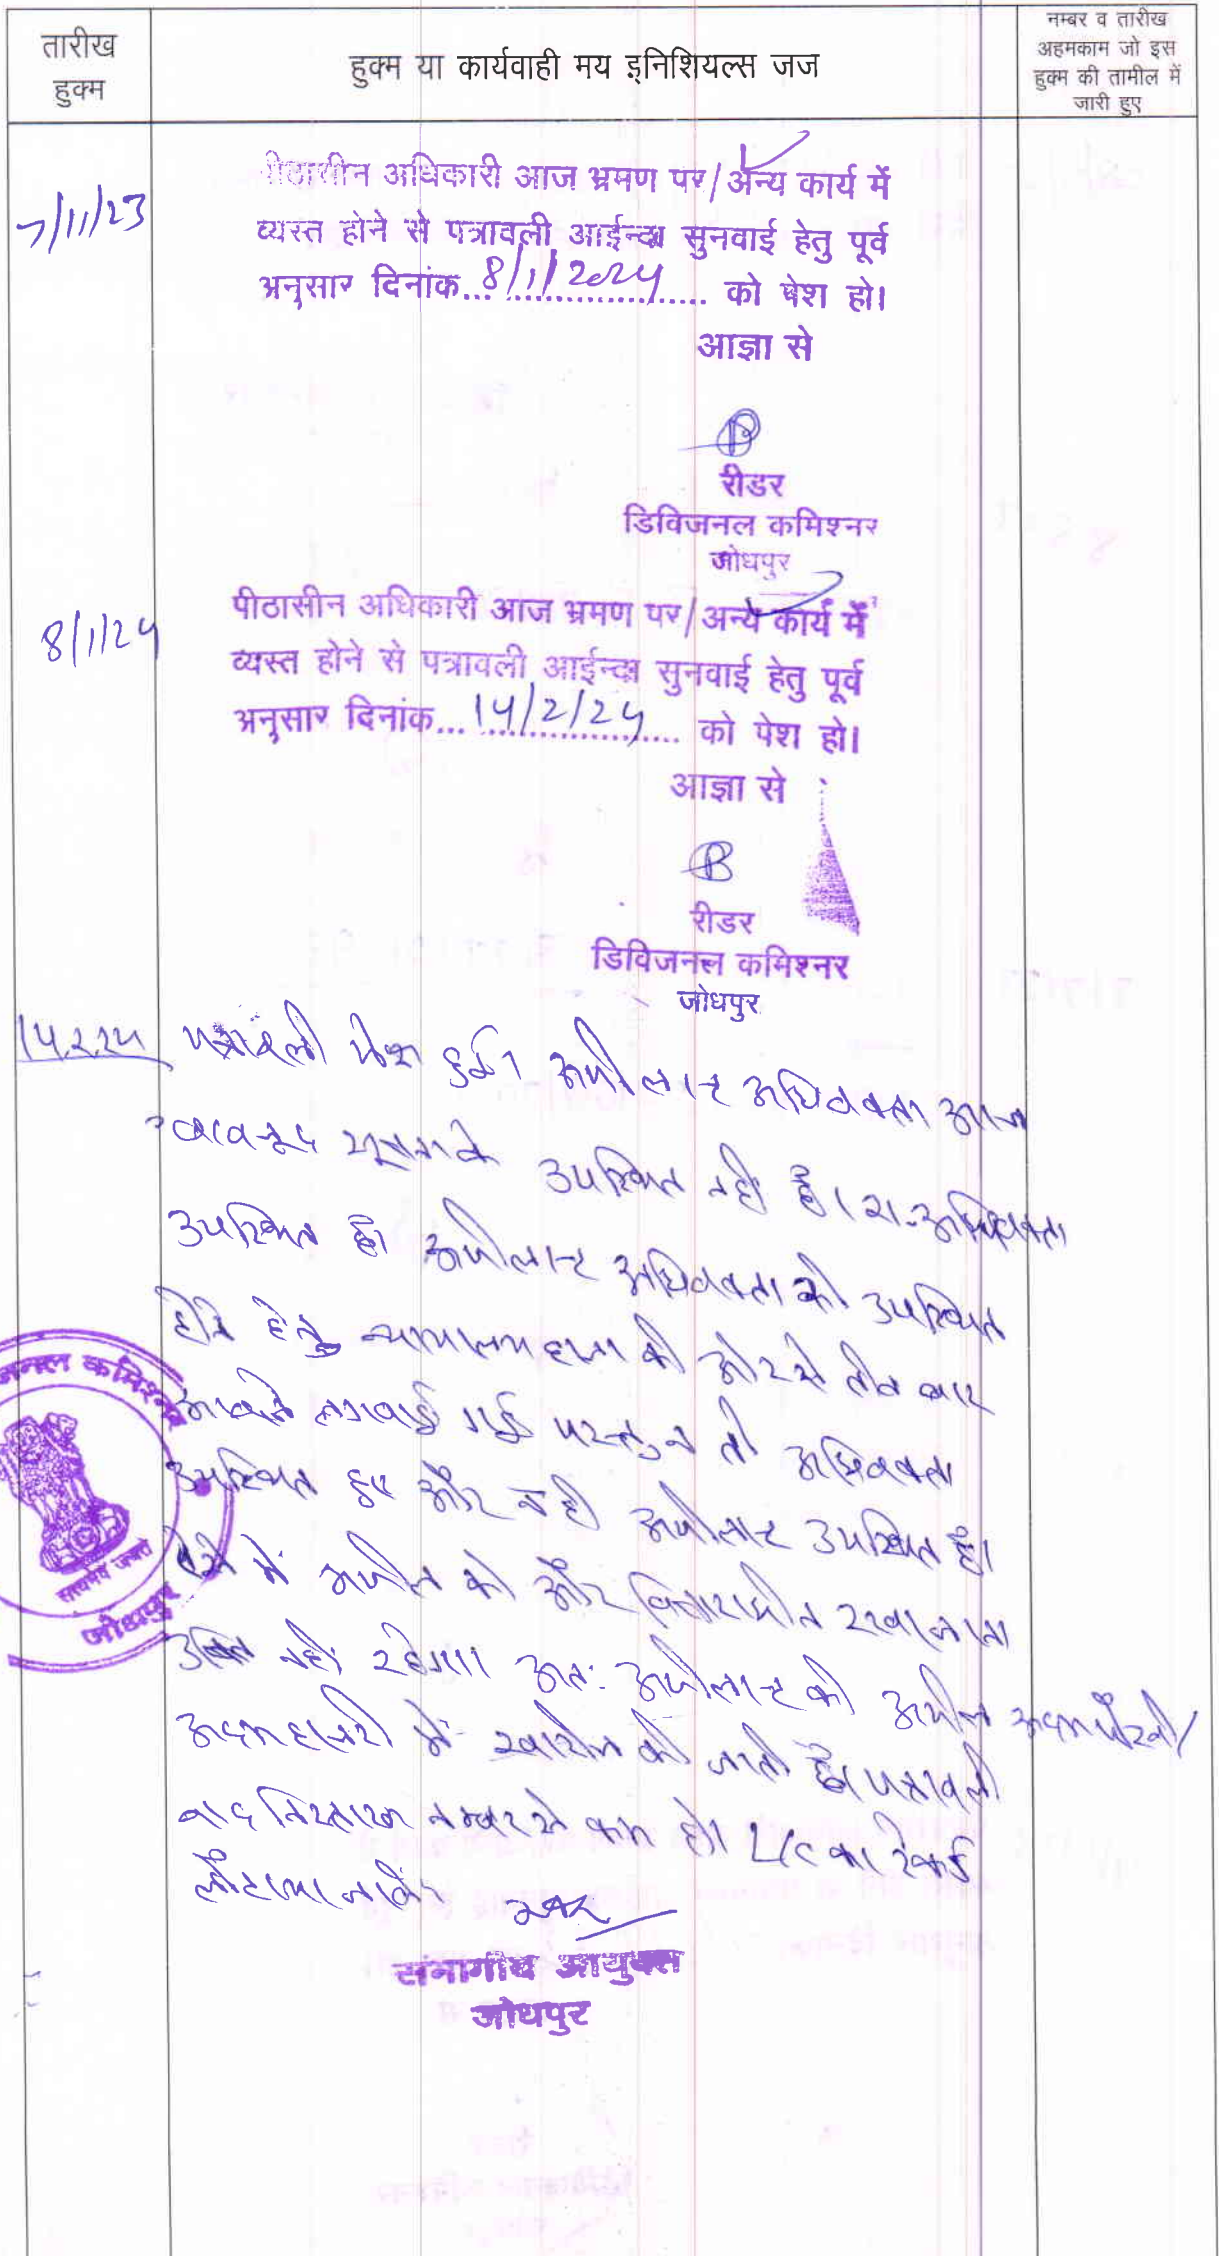 तारीख
हुक्म
हुक्म या कार्यवाही मय इनिशियल्स जज
नम्बर व तारीख
अहमकाम जो इस
हुक्म की तामील में
जारी हुए
7/11/23
पीठासीन अधिकारी आज भ्रमण पर/अन्य कार्य में
व्यस्त होने से पत्रावली आईन्दा सुनवाई हेतु पूर्व
अनुसार दिनांक... 8/1/2024 ... को पेश हो।
आज्ञा से
रीडर
डिविजनल कमिश्नर
जोधपुर
8/1/24
पीठासीन अधिकारी आज भ्रमण पर/अन्य कार्य में
व्यस्त होने से पत्रावली आईन्दा सुनवाई हेतु पूर्व
अनुसार दिनांक... 14/2/24 ... को पेश हो।
आज्ञा से
रीडर
डिविजनल कमिश्नर
जोधपुर
14.2.24
पत्रावली पेश हुई। अपीलान्ट अधिवक्ता आज
बावजूद सूचना के उपस्थित नहीं है। रा. अधिवक्ता
उपस्थित है। अपीलान्ट अधिवक्ता को उपस्थित
होने हेतु न्यायालय हाजा की ओर से तीन बार
आवाजे लगवाई गई परन्तु न तो अधिवक्ता
उपस्थित हुए और न ही अपीलान्ट उपस्थित है।
ऐसे में अपील को और विचाराधीन रखा जाना
उचित नहीं रहेगा। अतः अपीलान्ट की अपील अदम पैरवी/
अदम हाजरी में खारीज की जाती है। पत्रावली
बाद निस्तारण नम्बर से कम हो। L/C का रेकर्ड
लौटाया जावे।
संभागीय आयुक्त
जोधपुर
जनल कमिश्नर
सत्यमेव जयते
जोधपुर